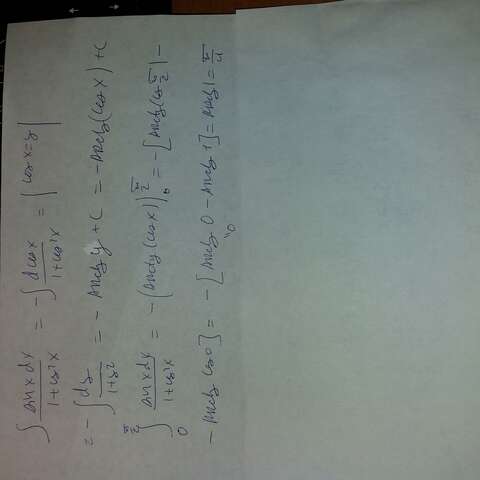 ∫ sin x dx / 1+cos²x = -∫ d cos x / 1+cos²x = | cos x = y |
= -∫ dy / 1+y² = - arctg y + C = - arctg (cos x) + C
∫₀^{π/2} sin x dx / 1+cos²x = - (arctg (cos x)) |₀^{π/2} = - [ arctg (cos π/2) -
- arctg cos 0 ] = - [ arctg 0 - arctg 1 ] = arctg 1 = π/4
"0